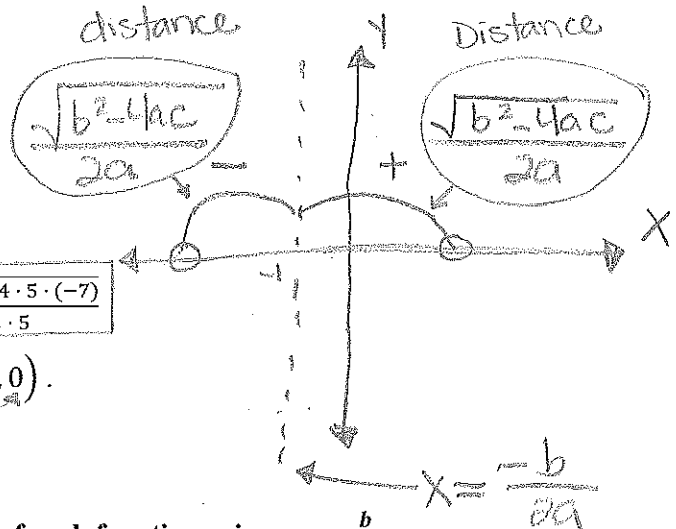 distance
Distance
Y
√(b²-4ac)/2a
-
+
√(b²-4ac)/2a
X
4 · 5 · (-7)
· 5
, 0) .
x = -b/2a
b